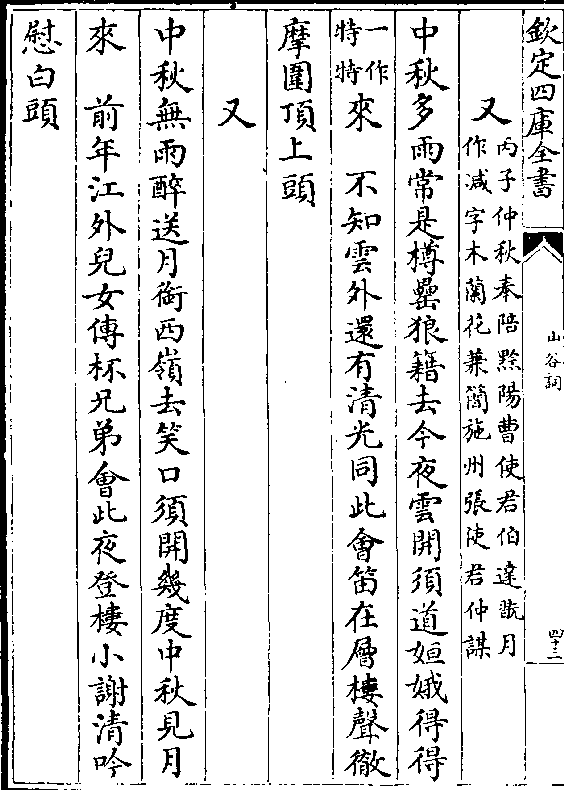 欽定四庫全書
山谷詞
四十二
又丙子仲秋奉陪黔陽曹使君伯達翫月
作減字木蘭花兼簡施州張使君仲謀
中秋多雨常是樽罍狼籍去今夜雲開須道姮娥得得
一作特特來　不知雲外還有清光同此會笛在層樓聲徹
摩圍頂上頭
又
中秋無雨醉送月銜西嶺去笑口須開幾度中秋見月
來　前年江外兒女傳杯兄弟會此夜登樓小謝清吟
慰白頭